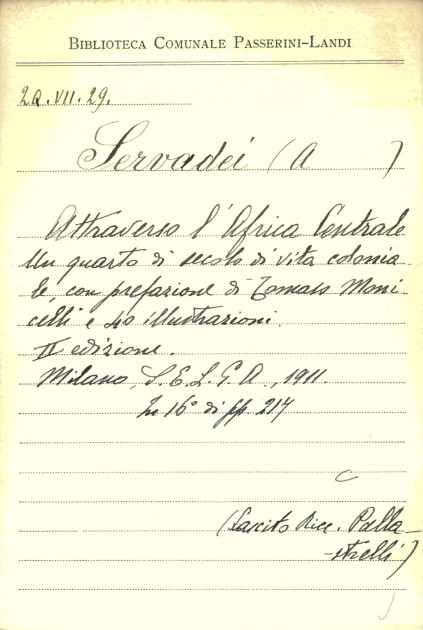 BIBLIOTECA COMUNALE PASSERINI-LANDI
2Q.VII.29.
Servadei (A )
Attraverso l'Africa Centrale
Un quarto di secolo di vita colonia-
le, con prefazione di Tomaso Moni-
celli e 40 illustrazioni.
II edizione.
Milano, S.E.L.G.A., 1911.
In 16° di pp. 217
(Lascito Ricc. Palla-
-strelli)